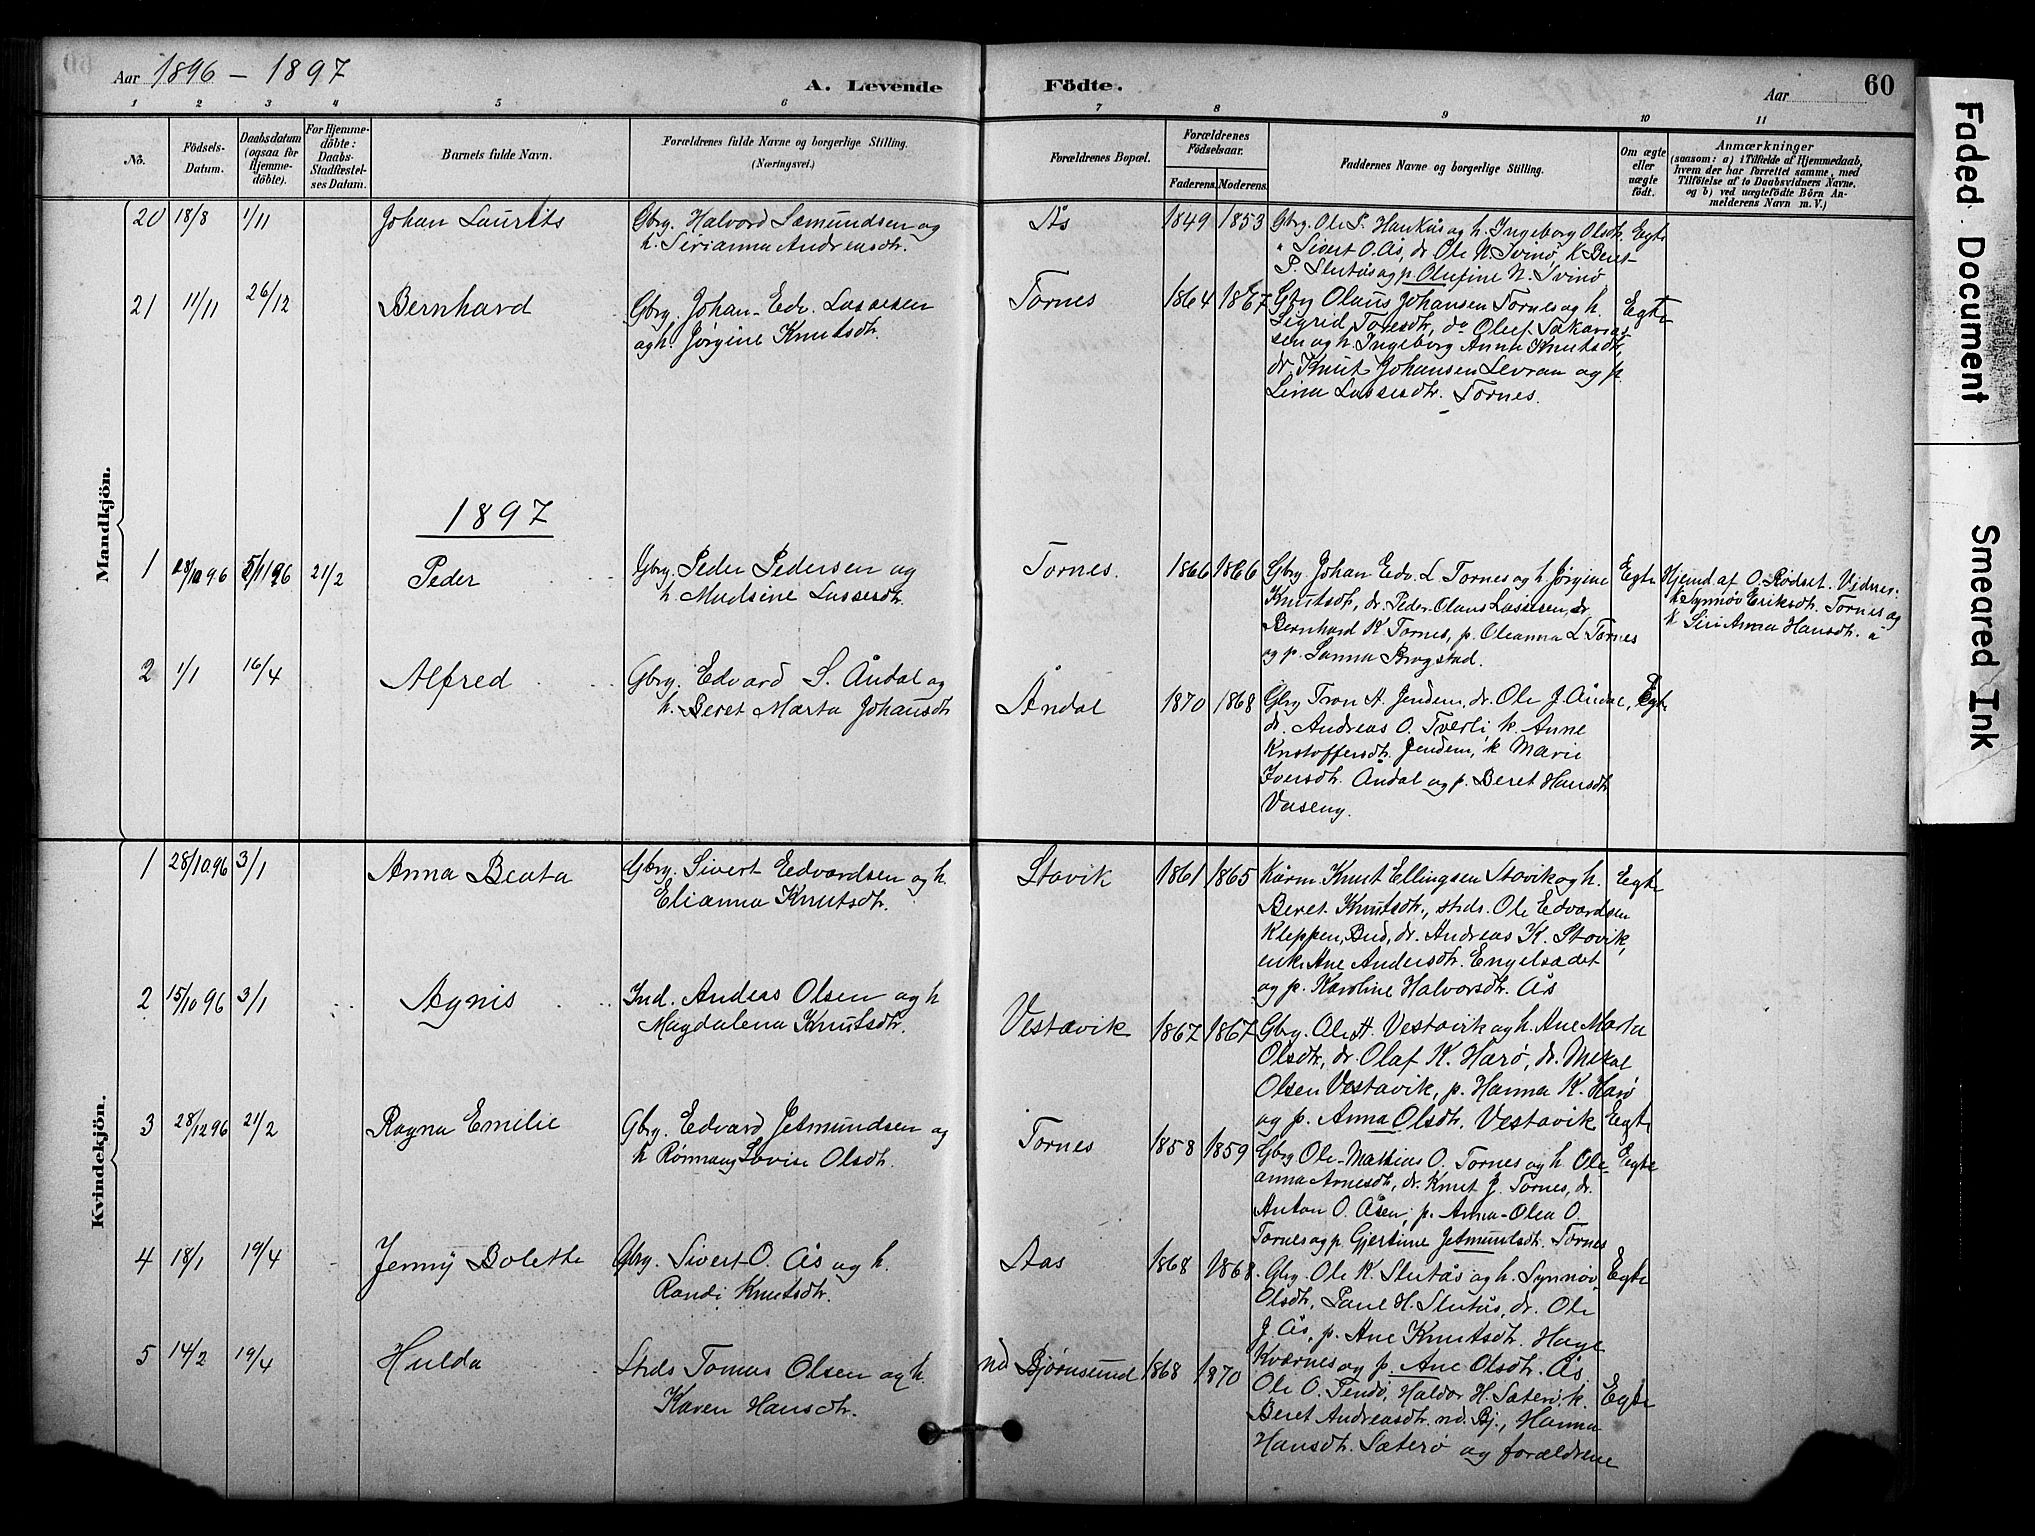 Aar 1896 - 1897
A. Levende Födte.
Aar
60
1 2 3 4 5 6 7 8 9 10 11
No.
Födsels-Datum.
Daabsdatum (ogsaa for Hjemme-döbte).
For Hjemme-döbte: Daabs-Stadfæstel-ses Datum.
Barnets fulde Navn.
Forældrenes fulde Navne og borgerlige Stilling. (Næringsvei.)
Forældrenes Bopæl.
Forældrenes Födselsaar.
Faderens. Moderens.
Faddernes Navne og borgerlige Stilling.
Om ægte eller uægte födt.
Anmærkninger
(saasom: a) i Tilfælde af Hjemmedaab,
hvem der har forrettet samme, med
Tilföielse af to Daabsvidners Navne.
og b) ved uægtefödte Börn An-
melderens Navn m. V.)
Mandkjön.
20 18/8 1/11 Johan Laurits
Gbrg. Halvord Sæmundsen og
h. Serianna Andreasdtr.
Ås 1849 1853
Gbrg. Ole P. Haukås og h. Ingeborg Olsdtr.
" Sivert O. Ås, dr. Ole N. Tvinö, k Beret
P. Slutås og p. Olufine N. Tvinö
Egte
21 11/11 26/12 Bernhard
Gbrg. Johan Edv. Lassesen
og h. Jørgine Knutsdtr.
Tornes 1864 1867
Gbrg Olaus Johansen Tornes og h.
Sigrid Toresdtr, do Oluf Sakarias
sen og h Ingeborg Anna Knutsdtr,
dr. Knut Johansen Levran og p.
Lina Lassesdtr. Tornes.
Egte
1897
1 28/10 96 5/11 96 21/2 Peder
Gbrg. Peder Pedersen og
h. Madsine Lassesdtr.
Tornes. 1866 1866
Gbrg Johan Edv. L Tornes og h Jørgine
Knutsdtr, dr. Peder Olaus Lassesen, dr.
Bernhard K. Tornes, p. Oleanna L Tornes
og p. Sanna Brogstad.
Egte
Hjemd af O. Rødset. Vidner.
k Synnöv Eriksdtr. Tornes og
k Siri Anna Hansdtr.
2 1/1 16/4 Alfred
Gbrg. Edvard S. Åndal og
h. Beret Marta Johansdtr
Åndal 1870 1868
Gbrg Tron A. Jendem, dr. Ole J. Åndal,
dr. Andreas O. Tverli, k. Anne
Kristoffersdtr. Jendem, k Marie
Iversdtr. Åndal og p. Beret Hansdtr
Vaseng.
Egte
Kvindekjön.
1 28/10.96 3/1 Anna Beata
Gbrg. Sivert Edvardsen og h.
Elianna Knutsdtr.
Stavik 1861 1865
Kårm Knut Ellingsen Stavik og h.
Beret Knutsdtr., strds. Ole Edvardsen
Kleppen, Bud, dr. Andreas K. Stavik,
enke Ane Andersdtr. Engelsædet
og p. Karoline Halvorsdtr. Ås
Egte
2 15/10 96 3/1 Agnis
Ind. Anders Olsen og h
Magdalena Knutsdtr.
Vestavik 1867 1867
Gbrg. Ole A Vestavik og h. Ane Marta
Olsdtr, dr. Olaf K. Harø, dr. Mekal
Olsen Vestavik, p. Hanna K. Harø
og p. Anna Olsdtr. Vestavik
Egte
3 28/12 96 21/2 Ragna Emilie
Gbrg. Edvard Jetmundsen og
h Rønnaug Lovise Olsdtr.
Tornes 1858 1859
Gbrg Ole-Mathias O. Tornes og h. Ole-
anna Arnesdtr, dr. Knut J. Tornes, dr.
Anton O. Åsen, p. Anna-Olea O.
Tornes og p Gjertine Jetmundsdtr. Tornes
Egte
4 18/1 19/4 Jenny Bolethe
Gbrg. Sivert O. Ås og h.
Randi Knutsdtr.
Aas 1868 1868
Gbrg. Ole K. Slutås og h. Synnöv
Olsdtr, Paul H. Slutås, dr. Ole
J. Ås, p. Ane Knutsdtr. Hage
Kværnes og p. Ane Olsdtr. Ås
Egte
5 14/2 19/4 Hulda
Strds Tomas Olsen og h.
Karen Hansdtr.
nd Bjørnsund 1868 1870
Ole O. Pendö, Haldor H. Sæterö, k.
Beret Andreasdtr. nd. Bj., Hanna
Hansdtr. Sæterø og forældrene
Egte
Faded Document
Smeared Ink